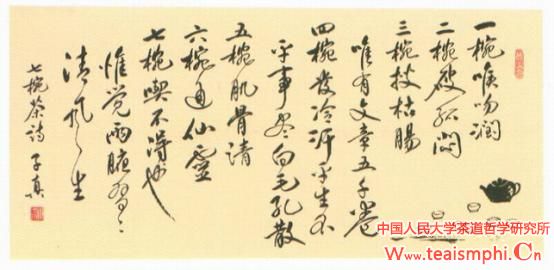 一椀喉吻润
二椀破孤闷
三椀搜枯腸
唯有文章五千卷
四椀发冷汗平生不
平事尽向毛孔散
五椀肌骨清
六椀通仙靈
七椀喫不得也
惟觉两腋習々
清风生
七椀茶诗 子真
中国人民大学茶道哲学研究所
Http://www.teaismphi.Cn